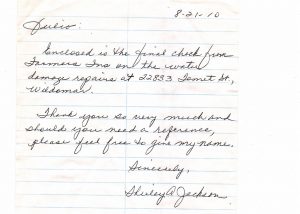 8-21-10
Julio:
Enclosed is the final check from
Farmers Ins on the water
damage repairs at 22833 St,
Wildomar.
Thank you so very much and
should you need a reference,
please feel free to give my name.
Sincerely,
Shirley A. Jackson